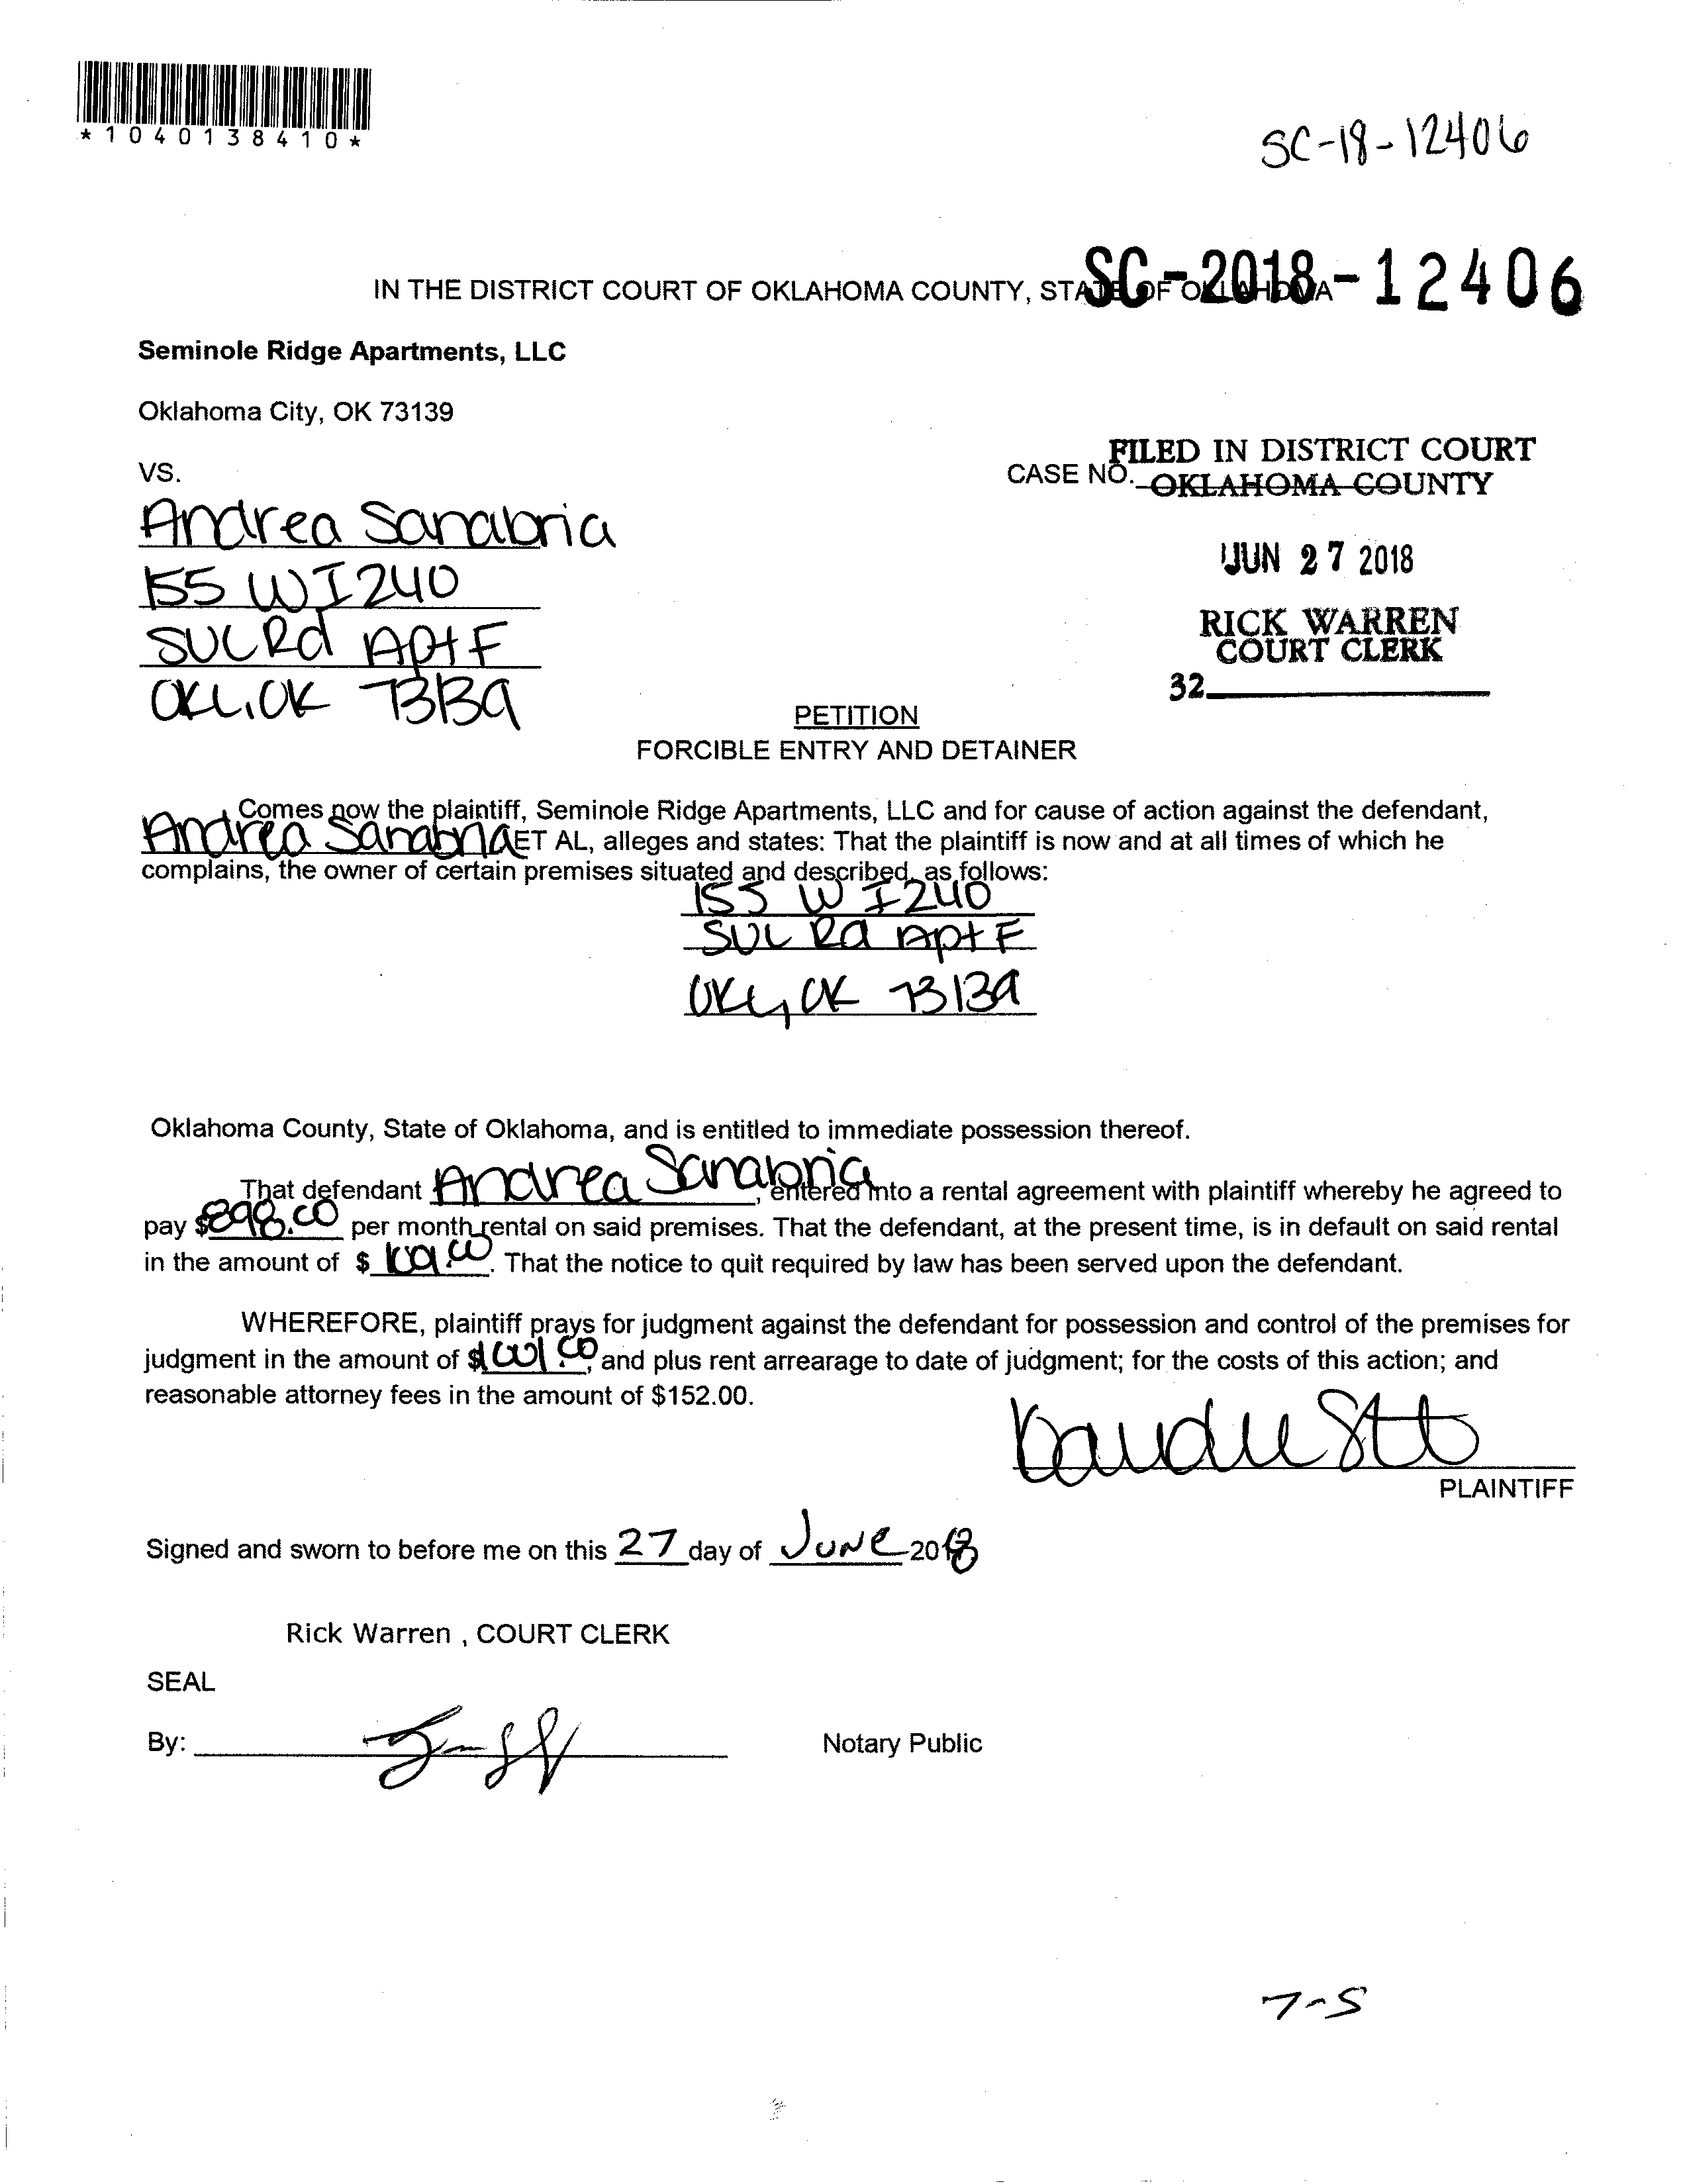 *1040138410*
SC-18-12406
SC-2018-12406
IN THE DISTRICT COURT OF OKLAHOMA COUNTY, STATE OF OKLAHOMA
Seminole Ridge Apartments, LLC
Oklahoma City, OK 73139
FILED IN DISTRICT COURT
VS.
CASE NO. OKLAHOMA COUNTY
Andrea Sanabria
JUN 27 2018
155 W I 240
RICK WARREN
COURT CLERK
SVC Rd Apt F
32
OKC, OK 73139
PETITION
FORCIBLE ENTRY AND DETAINER
Comes now the plaintiff, Seminole Ridge Apartments, LLC and for cause of action against the defendant,
Andrea Sanabria ET AL, alleges and states: That the plaintiff is now and at all times of which he
complains, the owner of certain premises situated and described, as follows:
155 W I 240
SVC Rd Apt F
OKC, OK 73139
Oklahoma County, State of Oklahoma, and is entitled to immediate possession thereof.
That defendant Andrea Sanabria, entered into a rental agreement with plaintiff whereby he agreed to
pay $898.00 per month rental on said premises. That the defendant, at the present time, is in default on said rental
in the amount of $ . That the notice to quit required by law has been served upon the defendant.
WHEREFORE, plaintiff prays for judgment against the defendant for possession and control of the premises for
judgment in the amount of $ , and plus rent arrearage to date of judgment; for the costs of this action; and
reasonable attorney fees in the amount of $152.00.
PLAINTIFF
Signed and sworn to before me on this 27 day of June 2018
Rick Warren , COURT CLERK
SEAL
By: Notary Public
7-5